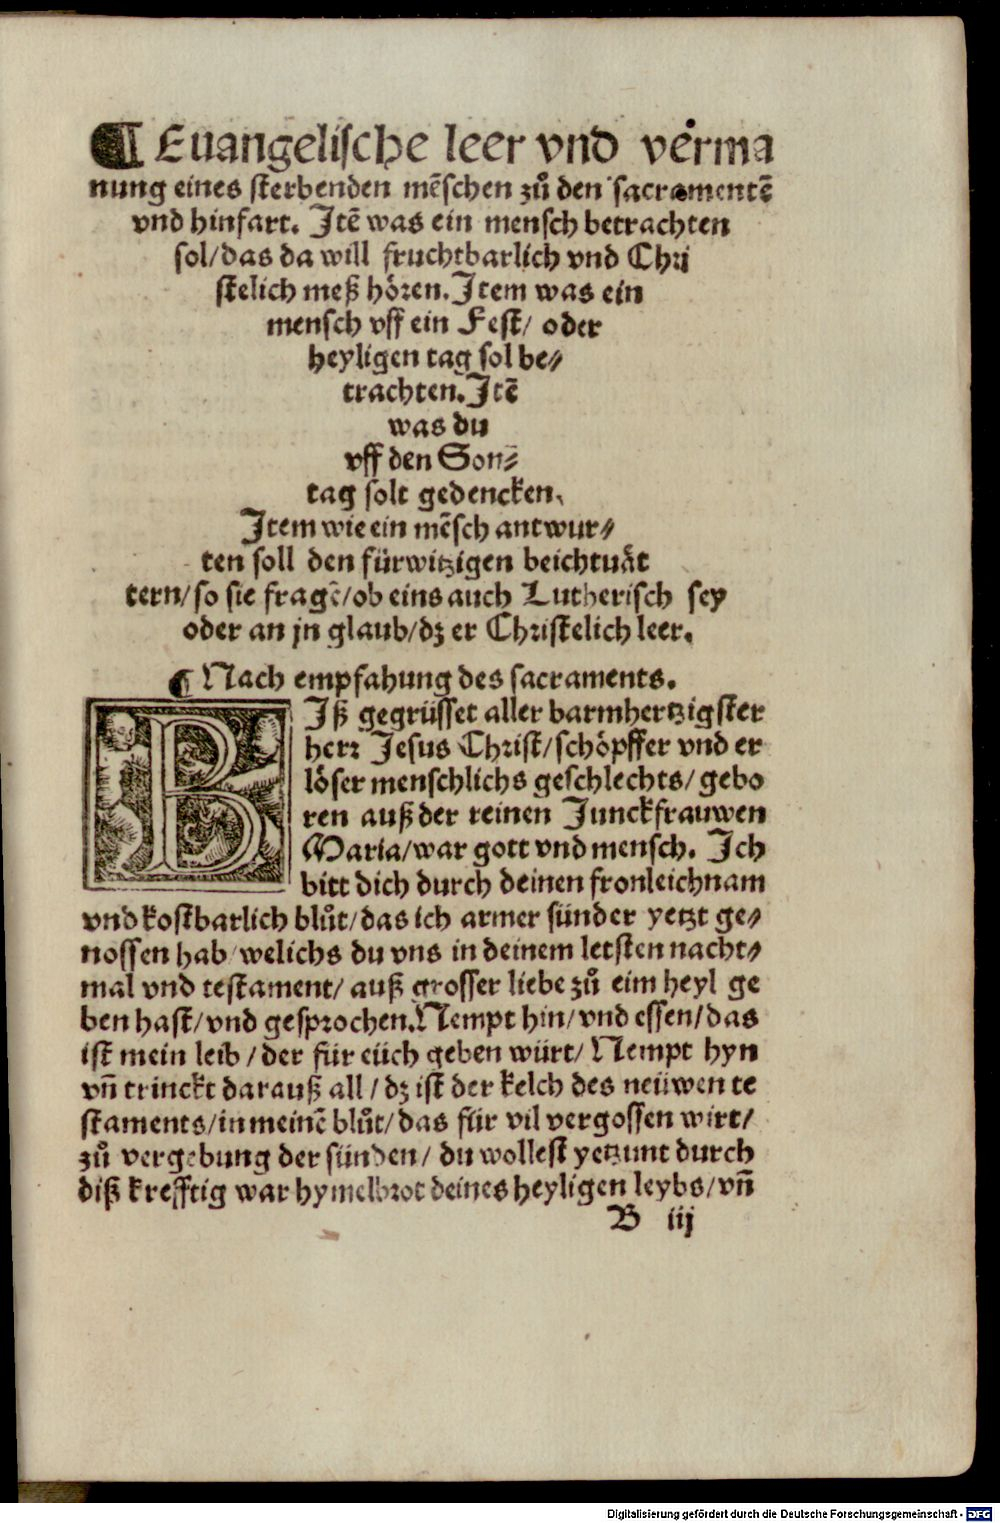 ¶ Euangelische leer vnd verma
nung eines sterbenden mẽschen zů den sacramentẽ
vnd hinfart. Itẽ was ein mensch betrachten
sol/das da will fruchtbarlich vnd Chri
stelich meß hören. Item was ein
mensch vff ein Fest/ oder
heyligen tag sol be⸗
trachten. Itẽ
was du
vff den Son⸗
tag solt gedencken.
Item wie ein mẽsch antwur⸗
ten soll den fürwitzigen beichtuät
tern/so sie fragẽ/ob eins auch Lutherisch sey
oder an jn glaub/dz er Christelich leer.
¶ Nach empfahung des sacraments.
BIß gegrüsset aller barmhertzigster
herr Jesus Christ/schöpffer vnd er
löser menschlichs geschlechts/ gebo
ren auß der reinen Junckfrauwen
Maria/war gott vnd mensch. Ich
bitt dich durch deinen fronleichnam
vnd kostbarlich blůt/das ich armer sünder yetzt ge⸗
nossen hab/welichs du vns in deinem letsten nacht⸗
mal vnd testament/ auß grosser liebe zů eim heyl ge
ben hast/vnd gesprochen. Nempt hin/vnd essen/das
ist mein leib/der für eüch geben würt/ Nempt hyn
vñ trinckt darauß all/dz ist der kelch des neüwen te
staments/in meinẽ blůt/das für vil vergossen wirt/
zů vergebung der sünden/ du wollest yetzunt durch
diß krefftig war hymelbrot deines heyligen leybs/vñ
B iij
Digitalisierung gefördert durch die Deutsche Forschungsgemeinschaft - DFG